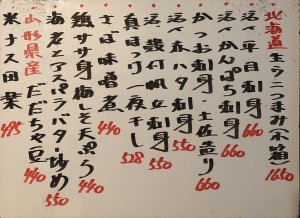 北海道生うにつまみ(小箱) 1650
活〆平目刺身 660
活〆かんぱち刺身 660
かつお刺身・土佐造り 660
活〆赤ハタ刺身 550
活〆幾何帆立刺身 550
真ほっけ一夜干し 528
しば味噌煮 440
鶏ササ身梅しそ天ぷら 440
海老とアスパラバター炒め 550
山形県産だだちゃ豆 440
米ナス田楽 495